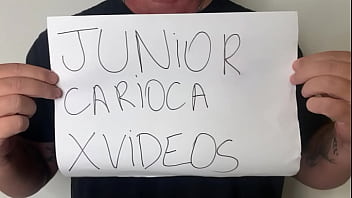 JUNIOR
CARIOCA
XVIDEOS